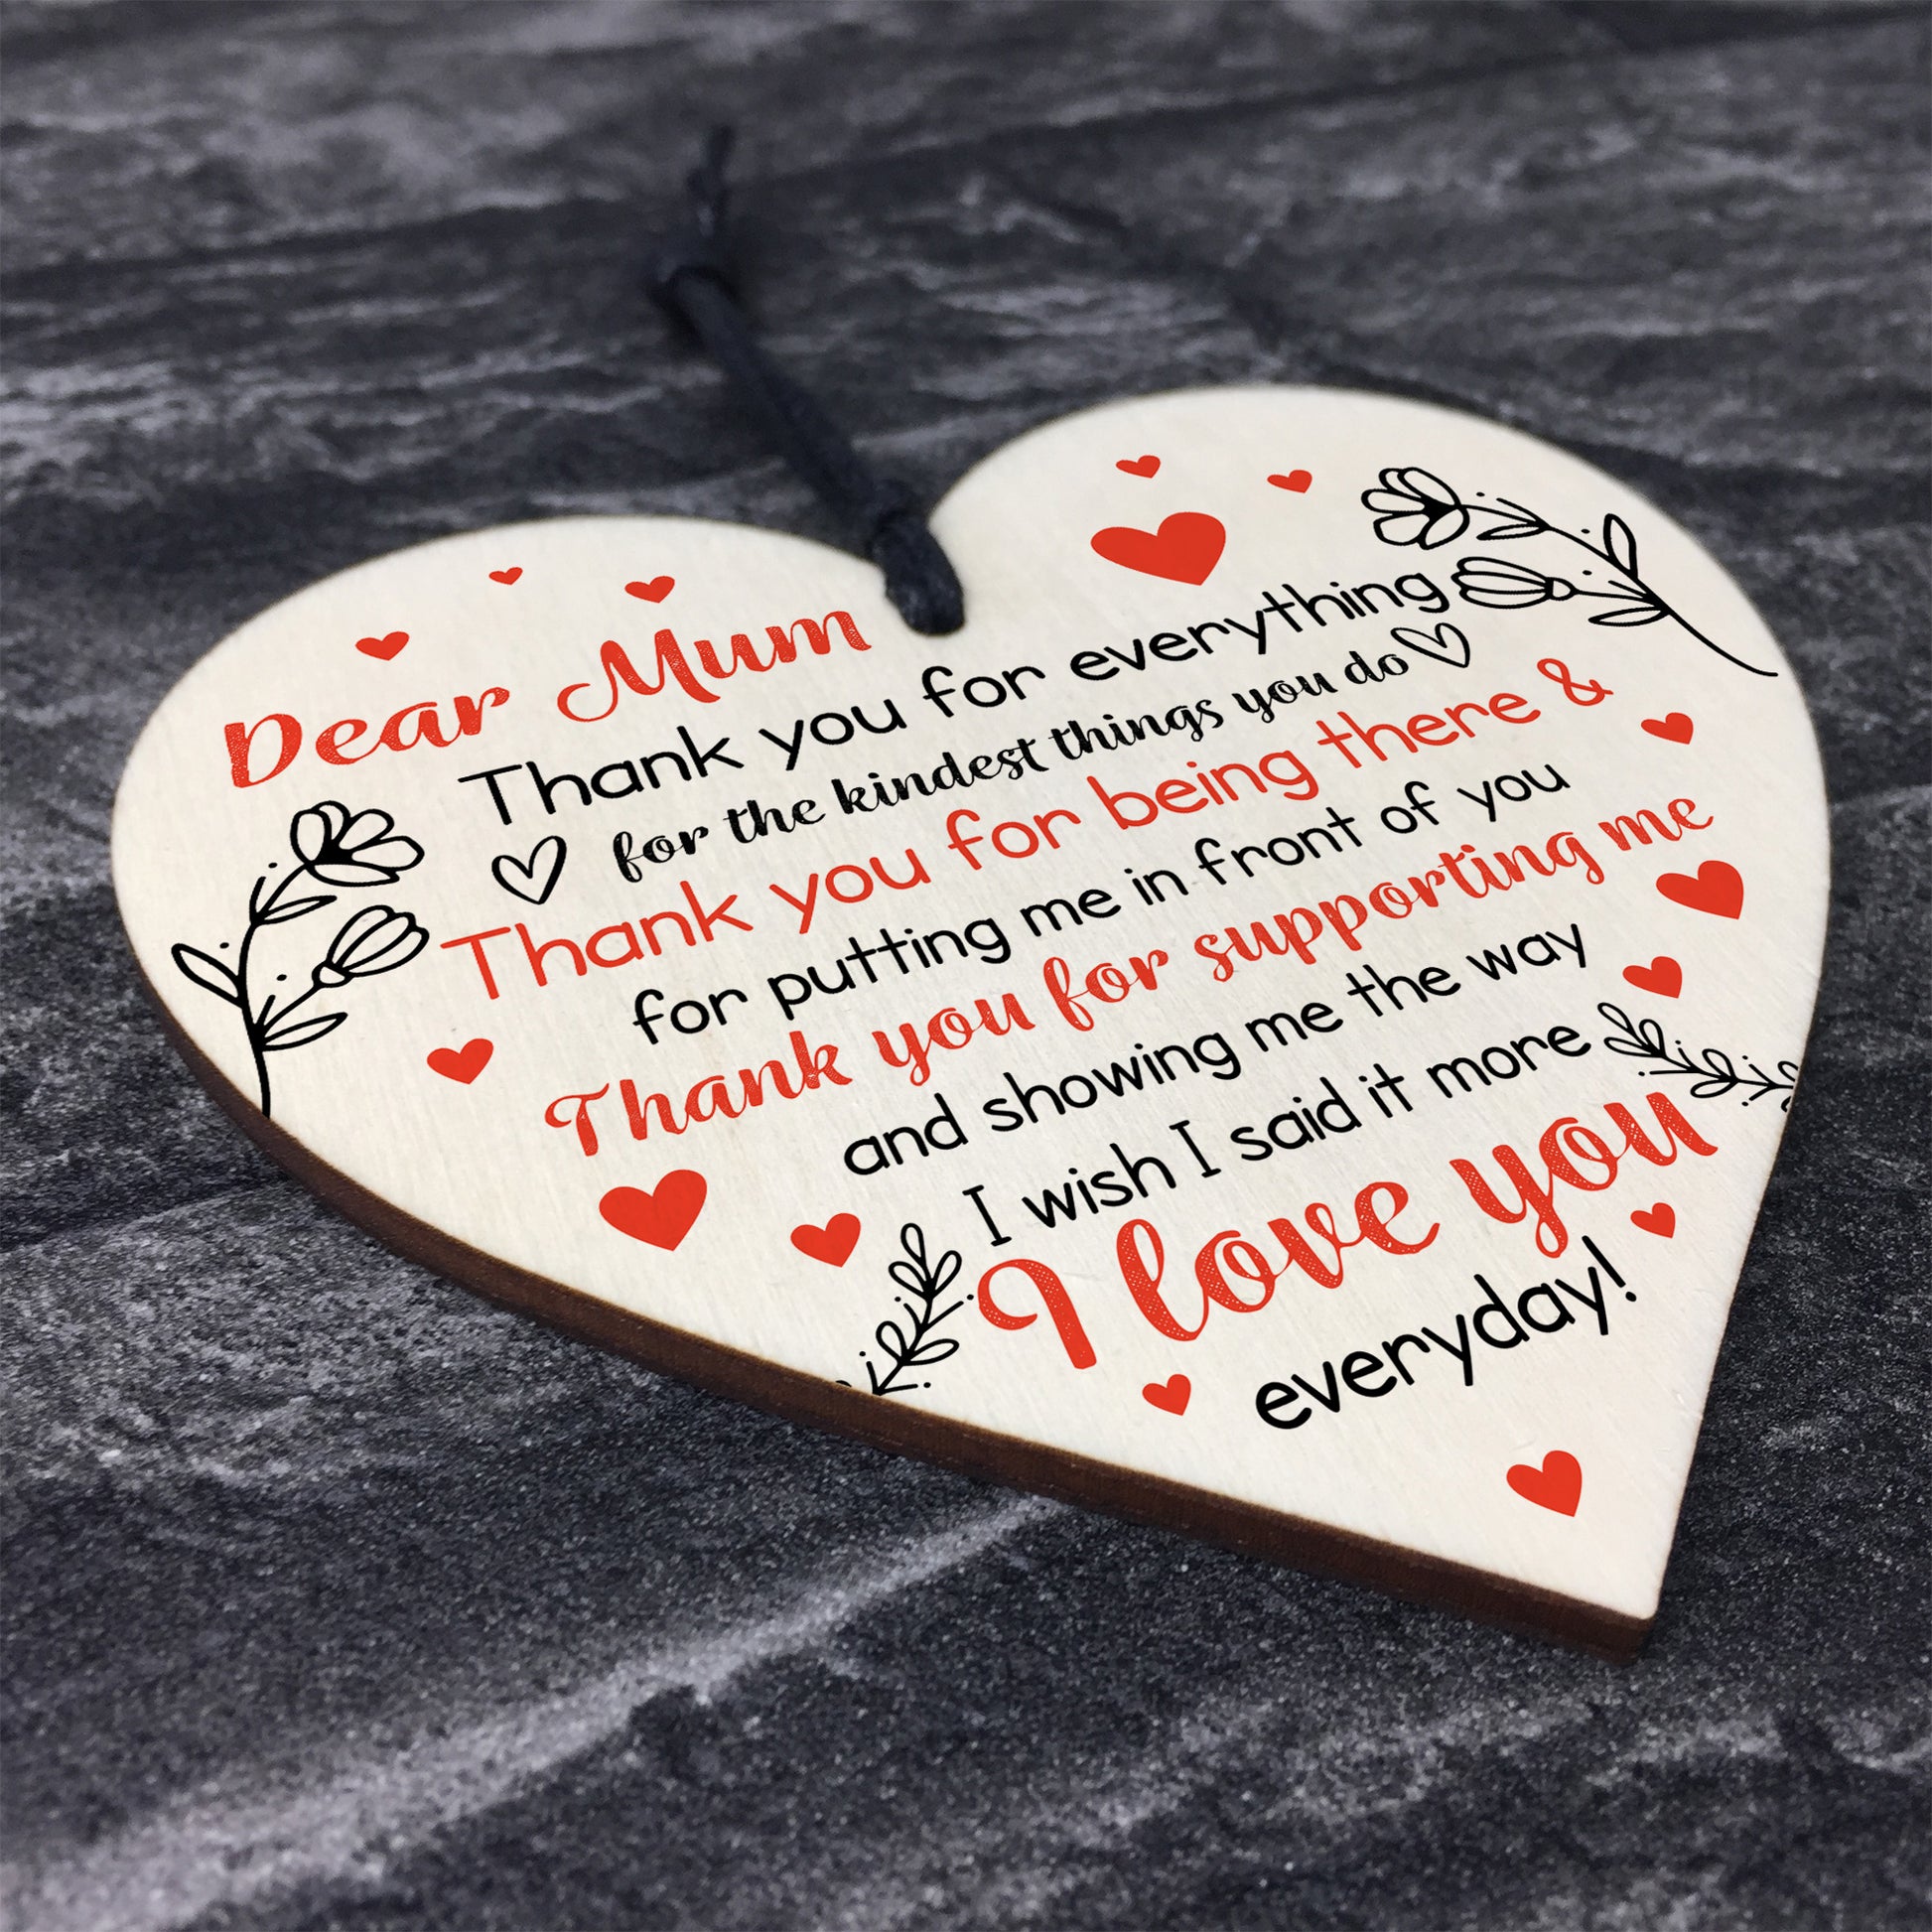 Dear Mum
Thank you for everything
for the kindest things you do
Thank you for being there &
for putting me in front of you
Thank you for supporting me
and showing me the way
I wish I said it more
I love you
everyday!